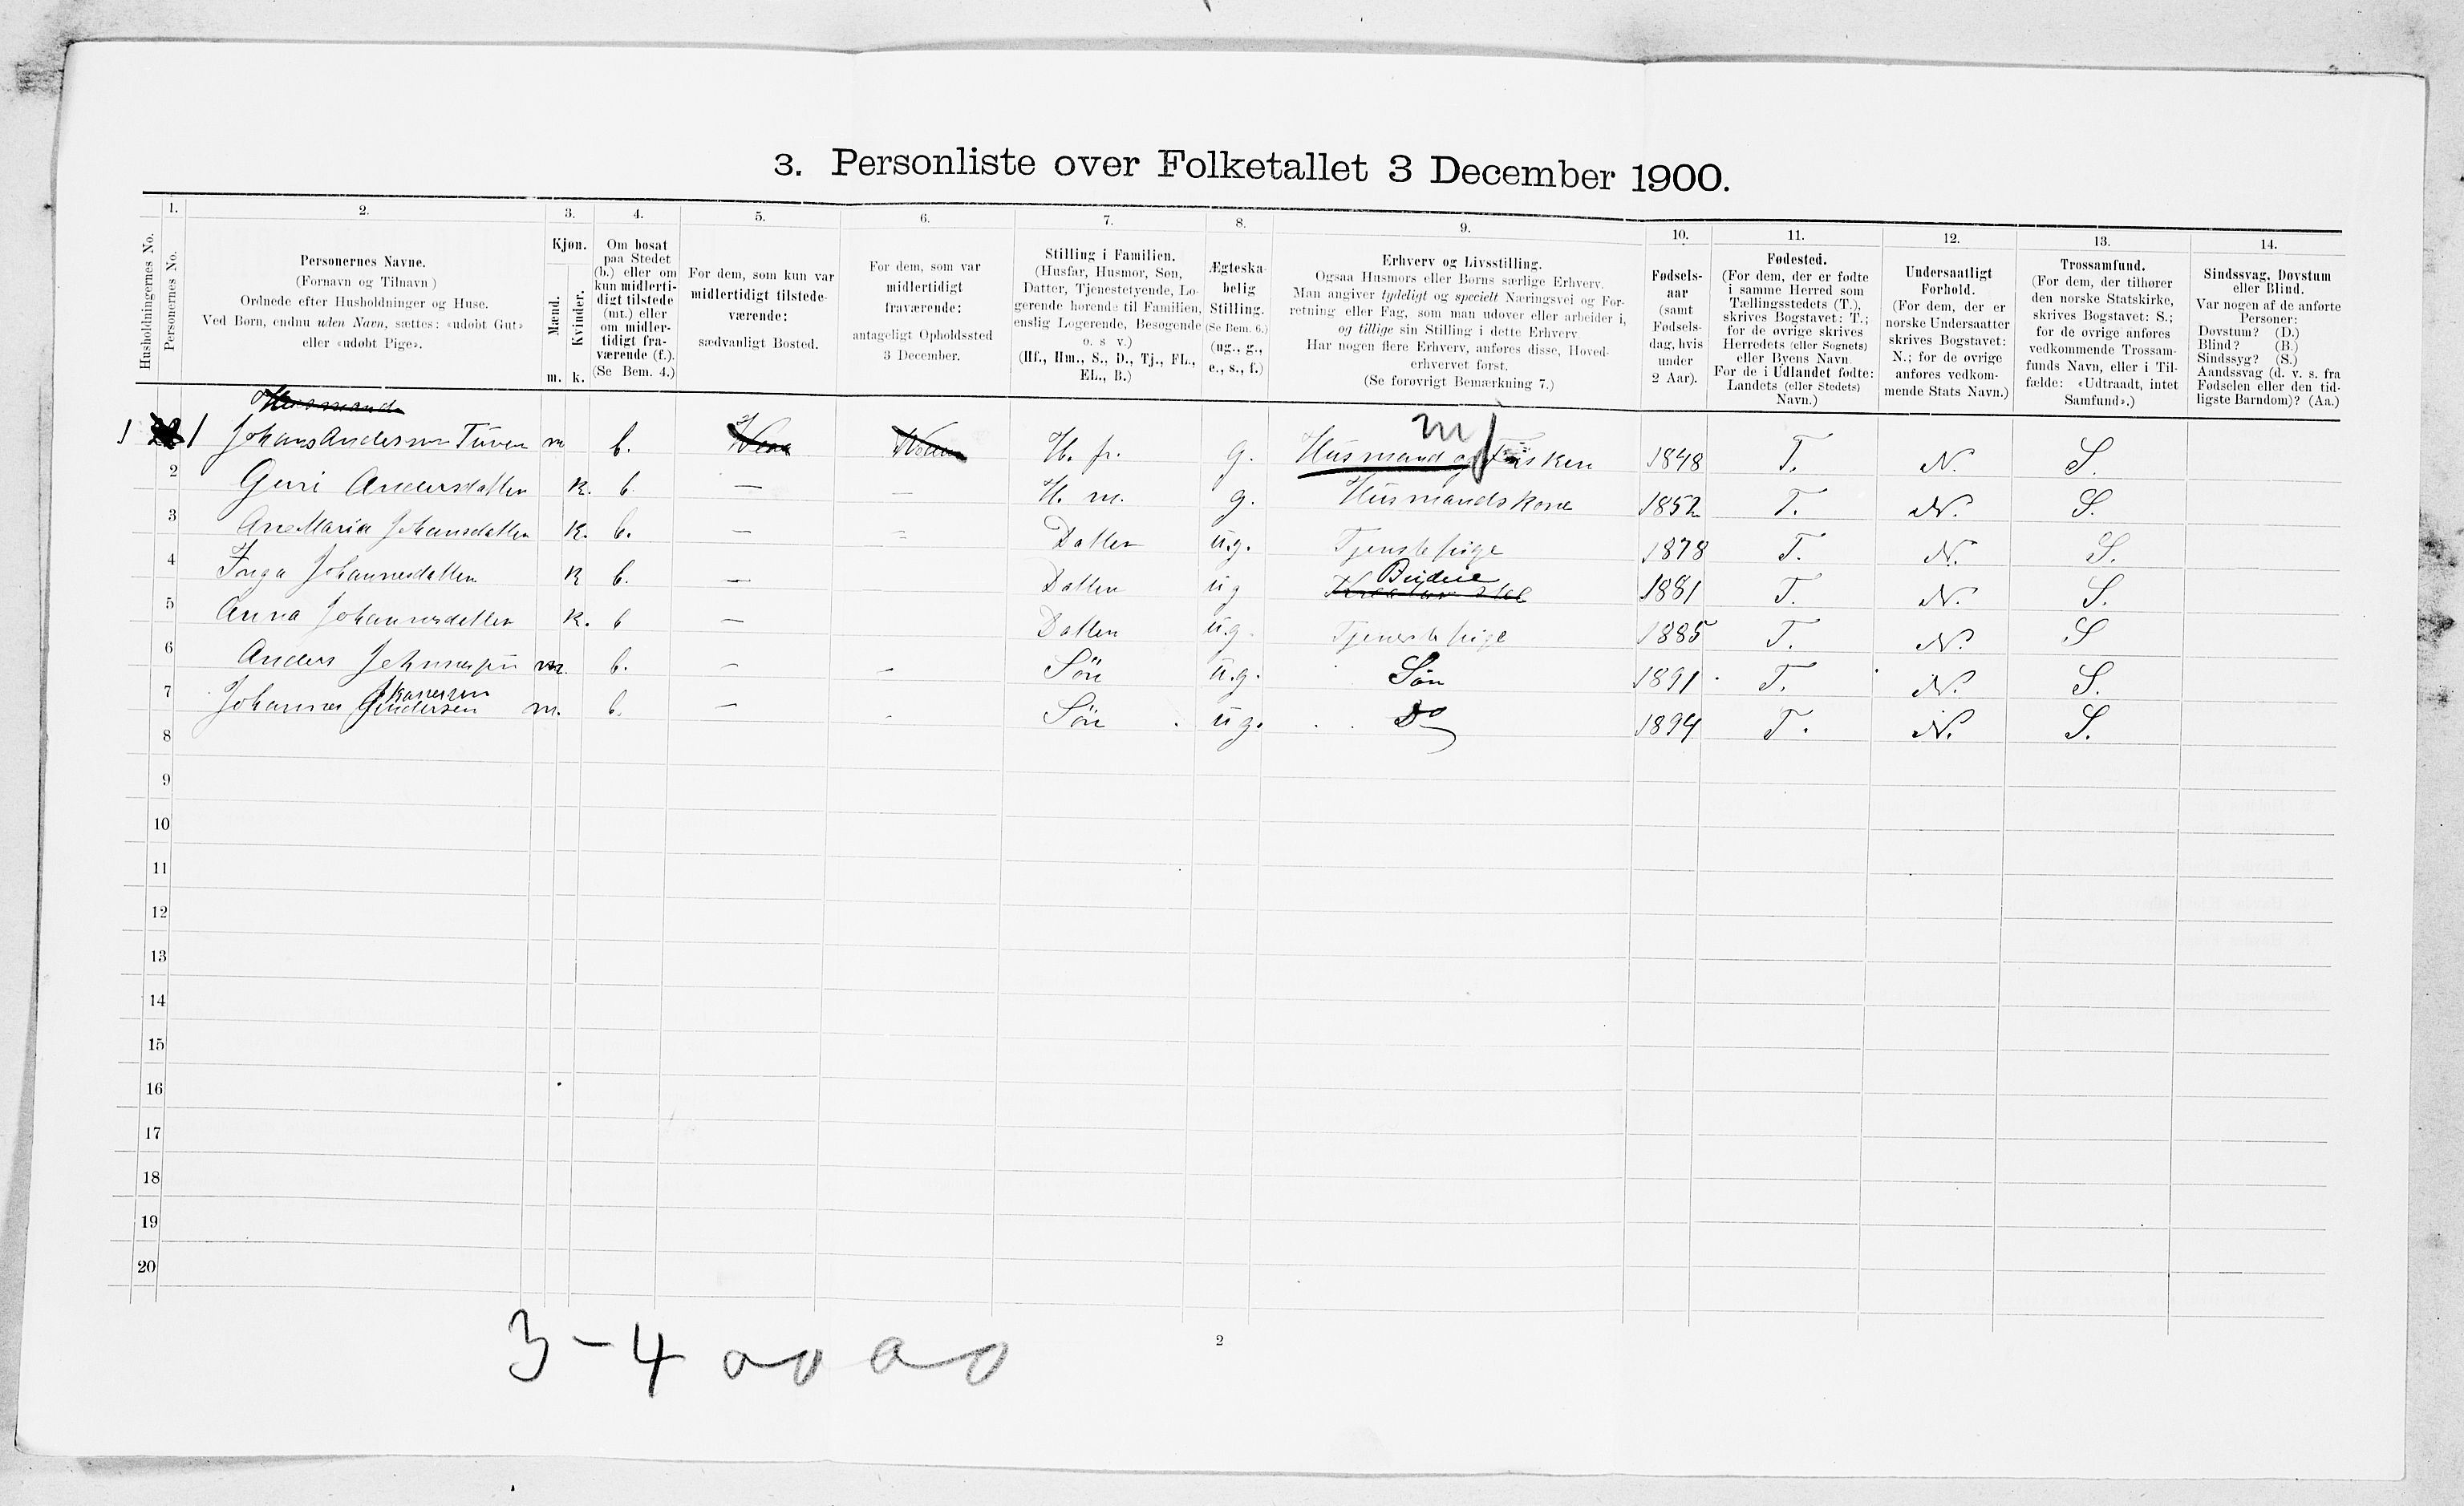 3. Personliste over Folketallet 3 December 1900.
1. 2. 3. 4. 5. 6. 7. 8. 9. 10. 11. 12. 13. 14.
Husholdningernes No.
Personernes No.
Personernes Navne.
(Fornavn og Tilnavn)
Ordnede efter Husholdninger og Huse.
Ved Børn, endnu uden Navn, sættes: «udøbt Gut»
eller «udøbt Pige».
Kjøn.
Mænd.
Kvinder.
m. k.
Om bosat
paa Stedet
(b.) eller om
kun midlerti-
digt tilstede
(mt.) eller
om midler-
tidigt fra-
værende (f.).
(Se Bem. 4.)
For dem, som kun var
midlertidigt tilstede-
værende:
sædvanligt Bosted.
For dem, som var
midlertidigt
fraværende:
antageligt Opholdssted
3 December.
Stilling i Familien.
(Husfar, Husmor, Søn,
Datter, Tjenestetyende, Lo-
gerende hørende til Familien,
enslig Logerende, Besøgende
o. s. v.)
(Hf., Hm., S., D., Tj., FL.,
EL., B.)
Ægteska-
belig
Stilling.
(Se Bem. 6.)
(ug., g.,
e., s., f.)
Erhverv og Livsstilling.
Ogsaa Husmors eller Børns særlige Erhverv.
Man angiver tydeligt og specielt Næringsvei og For-
retning eller Fag, som man udøver eller arbeider i,
og tillige sin Stilling i dette Erhverv.
Har nogen flere Erhverv, anføres disse, Hoved-
erhvervet først.
(Se forøvrigt Bemærkning 7.)
Fødsels-
aar
(samt
Fødsels-
dag, hvis
under
2 Aar).
Fødested.
(For dem, der er fødte
i samme Herred som
Tællingsstedets (T.),
skrives Bogstavet: T.;
for de øvrige skrives
Herredets (eller Sognets)
eller Byens Navn.
For de i Udlandet fødte:
Landets (eller Stedets)
Navn.)
Undersaatligt
Forhold.
(For dem, der er
norske Undersaatter
skrives Bogstavet:
N.; for de øvrige
anføres vedkom-
mende Stats Navn.)
Trossamfund.
(For dem, der tilhører
den norske Statskirke,
skrives Bogstavet: S.;
for de øvrige anføres
vedkommende Trossam-
funds Navn, eller i Til-
fælde: «Udtraadt, intet
Samfund».)
Sindssvag, Døvstum
eller Blind.
Var nogen af de anførte
Personer:
Døvstum? (D.)
Blind? (B.)
Sindssyg? (S.)
Aandssvag (d. v. s. fra
Fødselen eller den tid-
ligste Barndom)? (Aa.)
Husmand
m
1 1 Johans Andersen Tuven m b. H. fr. g. Husmand og Fisker 1848 T. N. S.
2 Guri Andersdatter k. b. — — H. m. g. Husmandskone 1852 T. N. S.
3 Ane Maria Johansdatter k. b. — — Datter ug. Tjenstepige 1878 T. N. S.
Budeie
4 Inga Johannesdatter k b. — Datter ug 1881 T. N. S.
5 Anna Johannesdatter k. b — Datter ug. Tjenestepige 1885 T. N. S
6 Anders m. b. — - Sön u.g. Sön 1891 T. N. S.
7 Johannes Andersen m. b. — - Sön ug. Do 1894 T. N. S.
8
9
10
11
12
13
14
15
16
17
18
19
20
3 - 4
2